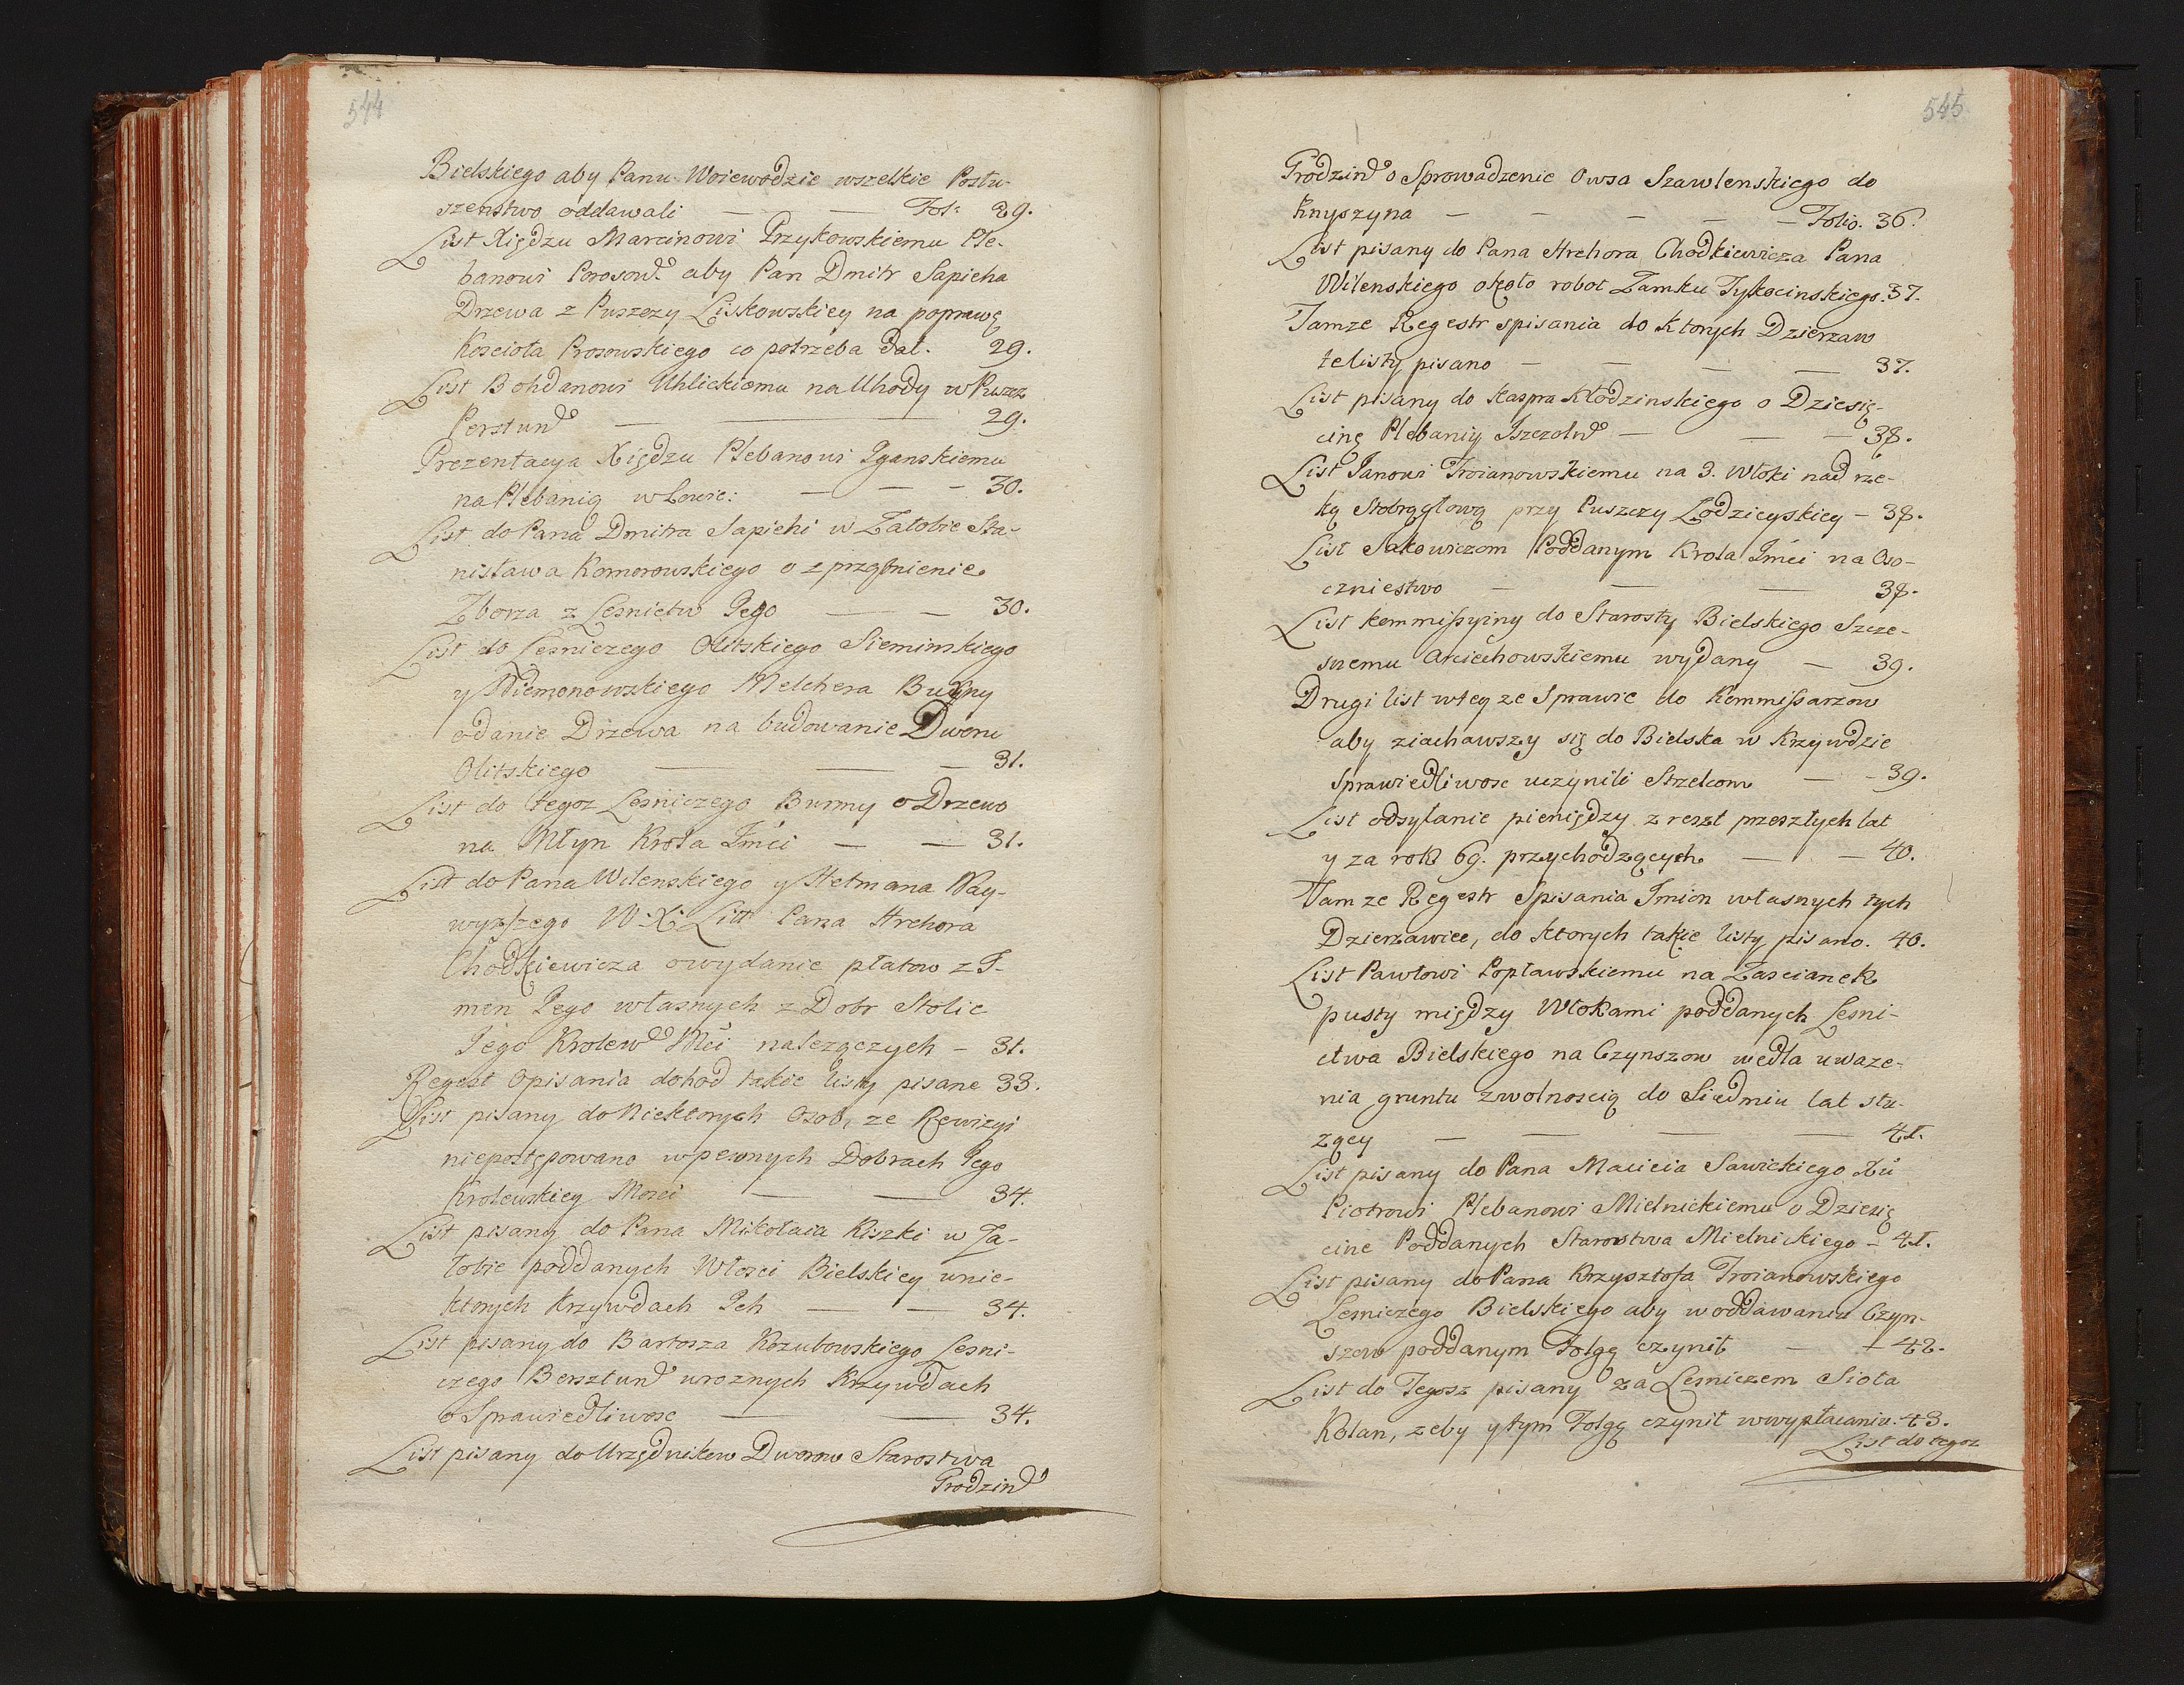 544
Bielskiego aby Panu Woiewodzie wszelkie Posłu-
szenstwo oddawali — — Fol: 29.
List Xiędzu Marcinowi Przykowskiemu Ple-
banowi Porosow͠d aby Pan Dmitr Sapieha
Drzewa z Puszczy Liskowskiey na poprawę
Koscioła Prosowskiego co potrzeba dał. 29.
List Bohdanowi Uhlickiemu na Uhody w Puszcz
Perstun͠d — — 29.
Prezentacya Xiędzu Plebanowi Iganskiemu
na Plebanią w — — — 30.
List do Pana Dmitra Sapiehi w Załobie Sta-
nisława Komorowskiego o zprzątnienie
Zborza z Lesnictw Jego — — 30.
List do Lesniczego Olitskiego Siemimskiego
y Niemonowskiego Melchera
o danie Drzewa na budowanie Dworu
Olitskiego — — — 31.
List do tegoz Lesniczego Burmy o Drzewo
na Młyn Krola Jmći — — 31.
List do Pana Wilenskiego y Hetmana Nay-
wyższego W. X. Litt Pana Hrehora
Chodkiewicza o wydanie płatow z I-
mien Jego własnych z Dobr Stolic
Jego Krolew͠d Mći nalezączych — 31.
Regest Opisania dokod takie listy pisane 33.
List pisany do Niektorych Osob, ze Rewizyi
niepostępowano w pewnych Dobrach Jego
Krolewskiey Mosci — — 34.
List pisany do Pana Mikołaia Kiszki w Za-
łobie poddanych Włosci Bielskiey w nie-
ktorych Krzywdach Ich — — 34.
List pisany do Bartosza Kozubowskiego Lesni-
czego Bersztun͠d w roznych Krzywdach
o Sprawiedliwosc — — 34.
List pisany do Urzędnikow Dworow Starostwa
Grodzin͠d
545
Grodzin͠d o Sprowadzenie Owsa Szawlenskiego do
Knyszyna — — — — — Folio. 36.
List pisany do Pana Hrehora Chodkiewicza Pana
Wilenskiego około robot Zamku Tykocinskiego. 37.
Tamze Regestr spisania do Ktorych Dzierzaw
te listy pisano — — — — 37.
List pisany do Kaspra Kłodzinskiego o Dziesię-
cinę Plebaniy Iszczoln͠d — — — 38.
List Janowi Troianowskiemu na 3. Włoki nad rze-
ką przy Puszczy Łodzieyskiey — 38.
List Sakowiczom Poddanym Krola Jmći na Oso-
czniestwo — — — 38.
List kommissyiny do Starosty Bielskiego Szcze-
snemu Arciechowskiemu wydany — 39.
Drugi list w tey ze Sprawie do Kommissarzow
aby ziachawszy się do Bielska w Krzywdzie
sprawiedliwosc uczynili Strzelcom — — 39.
List odsyłanie pieniędzy z reszt przeszłych lat
y za rok 69. przychodzących — — 40.
Tam ze Regestr Spisania Imion własnych tych
Dzierzawiec, do Ktorych takie listy pisano. 40.
List Pawłowi Popławskiemu na Zascianek
pusty między Włokami poddanych Lesni-
ctwa Bielskiego na Czynszow wedla uwaze-
nia gruntu z wolnoscią do Siedmiu lat słu-
zący — — — — 41.
List pisany do Pana Macieia Sawickiego Xu
Piotrowi Plebanowi Mielnickiemu o Dziesię
cine Poddanych Starostwa Mielnickiego — 41.
List pisany do Pana Krzysztofa Troianowskiego
Lesniczego Bielskiego aby w oddawaniu Czyn-
szow poddanym Folgę czynił — — 42.
List do Tegosz pisany za Lesniczem Sioła
Kolan, zeby y tym Folgę czynił w wypłacaniu. 43.
List do tegoz